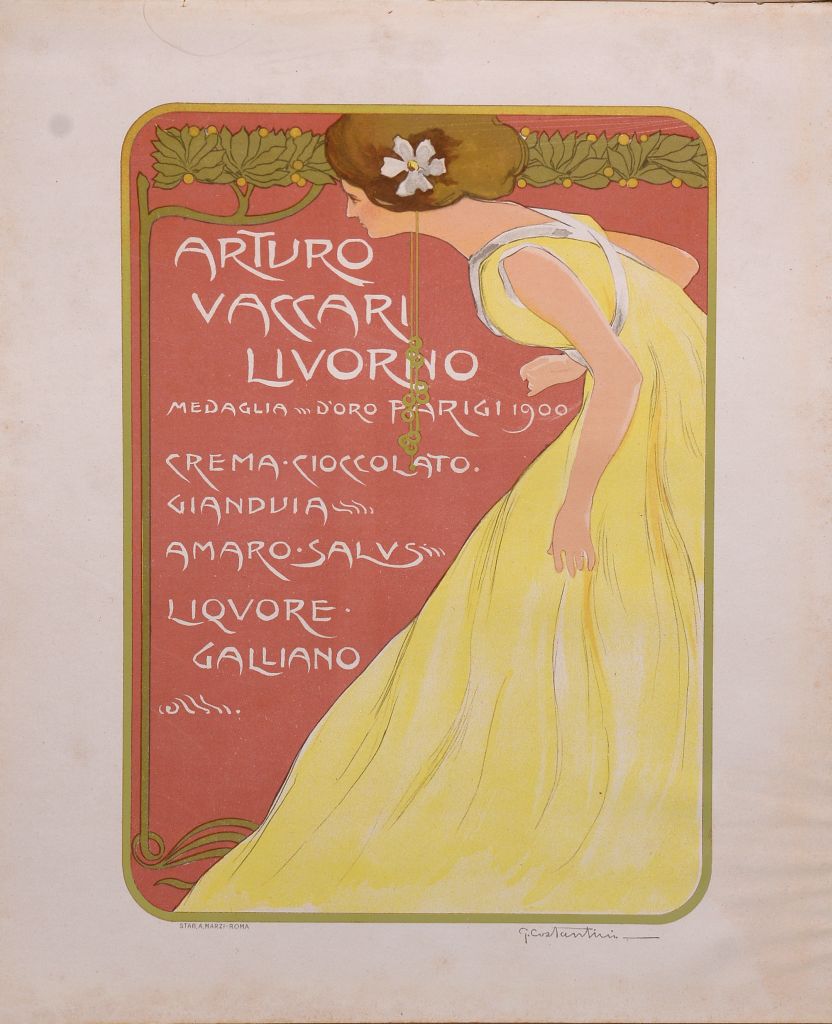 ARTURO
VACCARI
LIVORNO
MEDAGLIA D'ORO PARIGI 1900
CREMA·CIOCCOLATO.
GIANDVIA
AMARO·SALVS
LIQVORE·
GALLIANO
STAB. A. MARZI-ROMA
G. Costantini